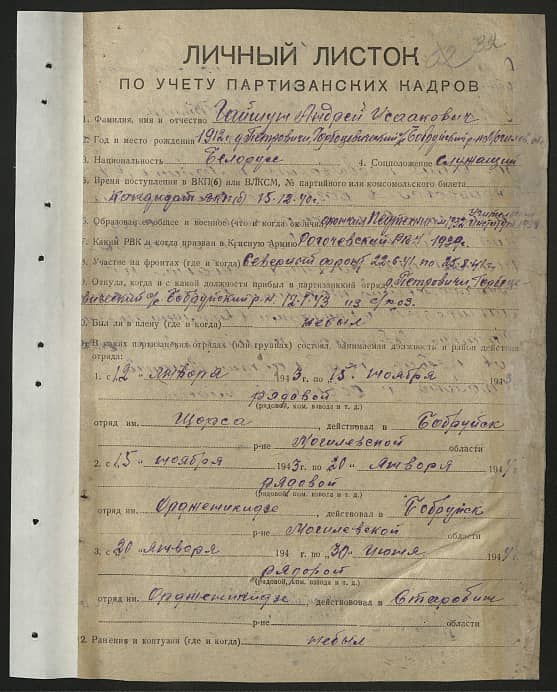 32
ЛИЧНЫЙ ЛИСТОК
ПО УЧЕТУ ПАРТИЗАНСКИХ КАДРОВ
1. Фамилия, имя и отчество Гайшун Андрей Исаакович
2. Год и место рождения 1912 г. д. Петровичи, Бобруйский р-н
3. Национальность Белорус 4. Соцположение Служащий
5. Время поступления в ВКП(б) или ВЛКСМ, № партийного или комсомольского билета
Кандидат ВКП(б) 15-12-40 г.
6. Образование общее и военное (что и когда окончил) среднее Педтехникум
7. Какий РВК и когда призван в Красную Армию Рогочевский РВК 1939 г.
8. Участие на фронтах (где и когда) Северный фронт 22-6-41 по 25-8-41 г.
9. Откуда, когда и с какой должности прибыл в партизанский отряд д. Петровичи,
с/с Бобруйский р-н. 12-1-43 из
10. Был ли в плену (где и когда) небыл
11. В каких партизанских отрядах (или группах) состоял, занимаемая должность и район действия
отряда:
1. с 12 " января 1943 г. по 15 " ноября 1943
рядовой
(рядовой, ком. взвода и т. д.)
отряд им. Щорса, действовал в Бобруйск
р-не Могилевской области
2. с 15 " ноября 1943 г. по 20 " января 1944 г.
рядовой
(рядовой, ком. взвода и т. д.)
отряд им. Орджетикидзе, действовал в Бобруйск
р-не Могилевской области
3. с 20 января 194 г. по 30 " июня 1944 г.
рядовой
(рядовой, ком. взвода и т. д.)
отряд им. Орджетикидзе, действовал в Старобин
р-не области
12. Ранения и контузии (где и когда) небыл